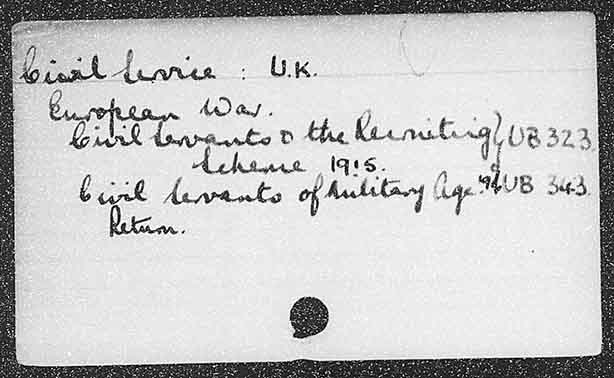 Civil Service : U.K.
European War.
Civil Servants & the Recruiting } UB 323
Scheme 1915.
Civil Servants of Military Age. UB 343.
Return.